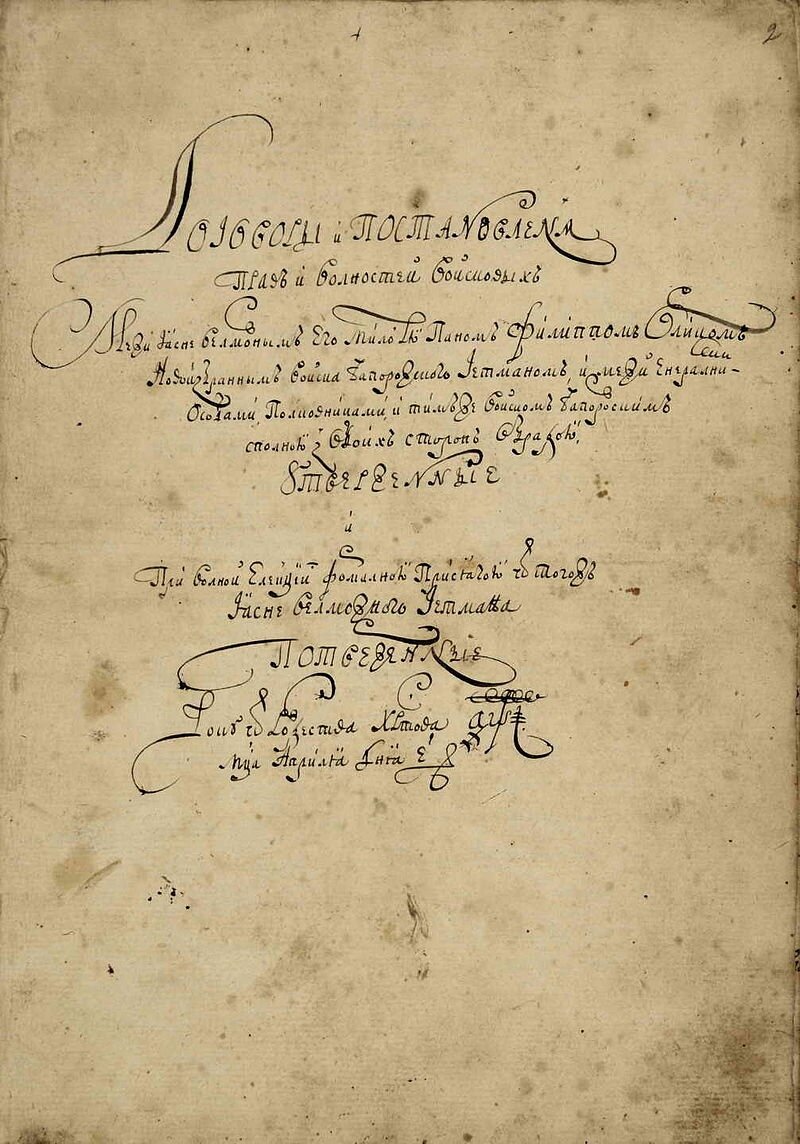 2
Договоры и постановленѧ
Правъ и волностей войсковыхъ
Межи Ясне велможнымъ Его млстю Паномъ Филиппомъ Орликомъ
Новоизбраннымъ войска Запорожского Гетманомъ, и межи Енералними
Особами Полковниками и тимъже войскомъ Запорозскимъ
сполною з обоихъ сторонъ обрадою
Утверженные
и
При волной Елекцїи формалною присѧгою ѿ тогожъ
Ясне велможного Гетмана
Потверженные
Року ѿ Рожества Христова аѱі
Мца Априлѧ днѧ е